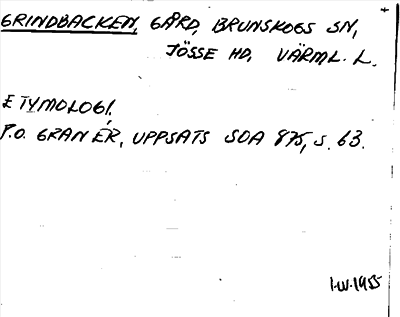 GRINDBACKEN, GÅRD, BRUNSKOGS SN,
JÖSSE HD, VÄRML. L.
ETYMOLOGI.
P.O. GRANÉR, UPPSATS SOA 875, S. 63.
1955